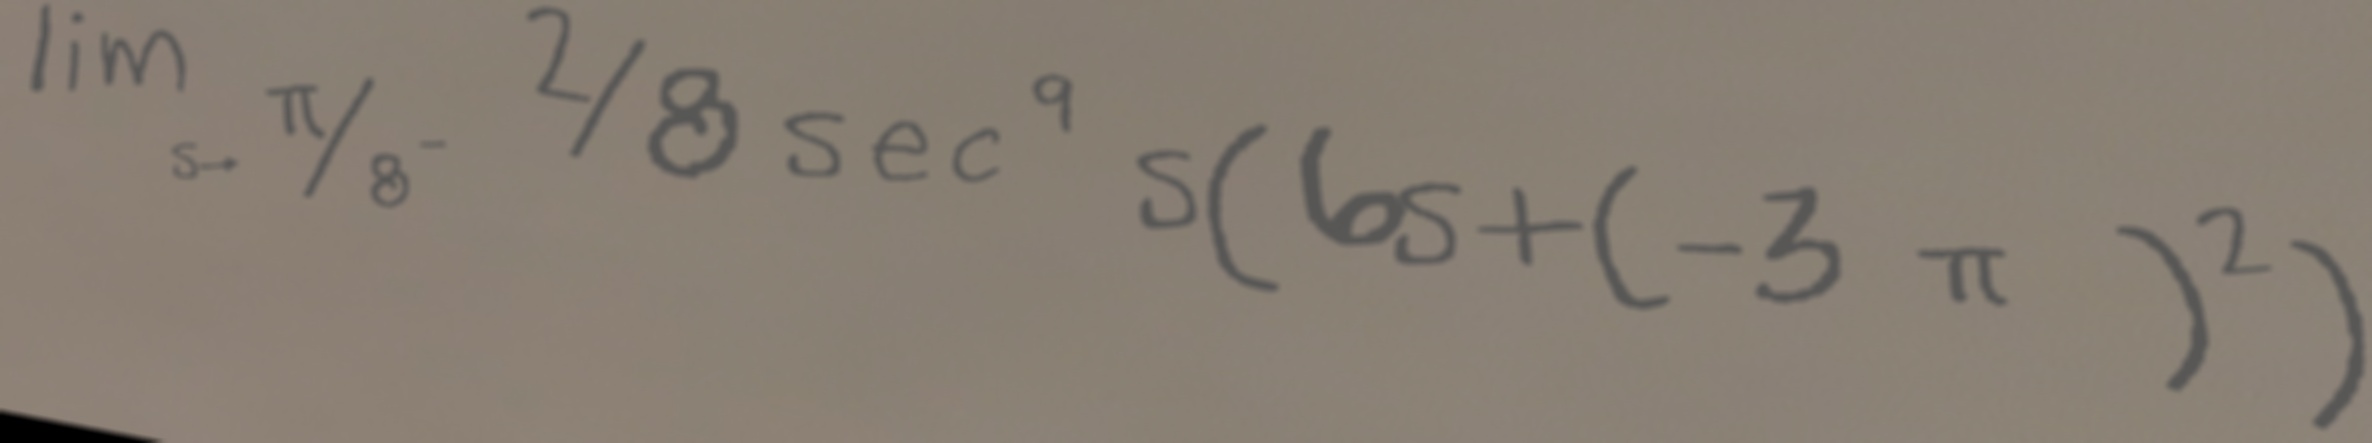 lim s→π/8⁻ 2/8 sec⁹ s(6s+(-3π)²)